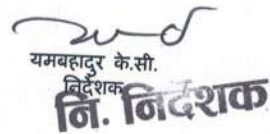 यमबहादुर के.सी.
निर्देशक
नि. निर्देशक